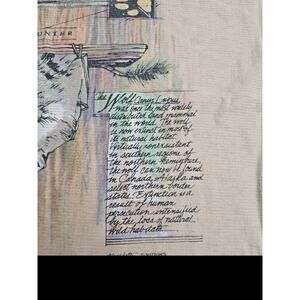 UNTER
The Wolf, Canus Lupus
was once the most widely
distributed land mammal
in the world. The wolf
is now extinct in most of
its natural habitat.
Virtually nonexistent
in southern regions of
the northern hemisphere,
the wolf can now be found
in Canada, Alaska and
select northern border
states. Extinction is a
result of human
persecution intensified
by the loss of natural
wild habitats.